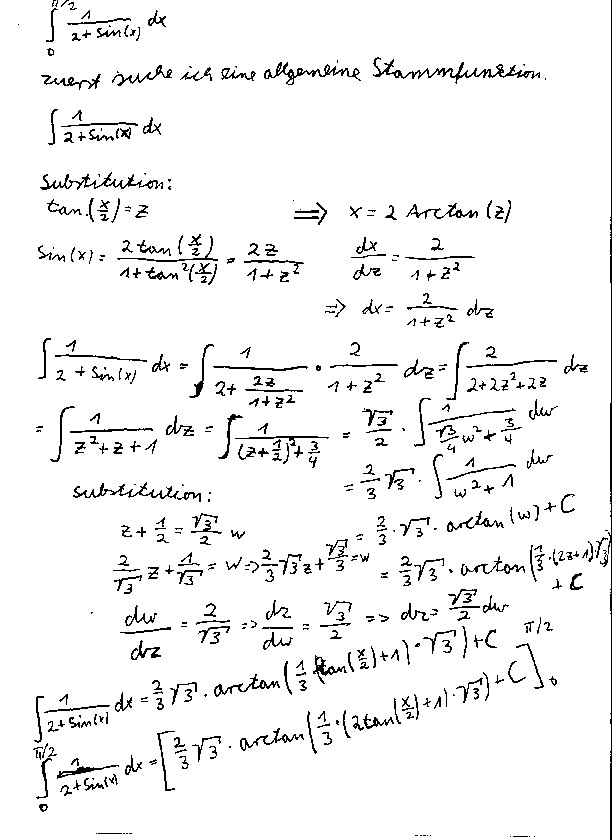 ∫₀^{π/2} 1/(2+sin(x)) dx
zuerst suche ich eine allgemeine Stammfunktion.
∫ 1/(2+sin(x)) dx
Substitution:
tan(x/2) = z ⟹ x = 2 Arctan(z)
sin(x) = 2tan(x/2)/(1+tan²(x/2)) = 2z/(1+z²) dx/dz = 2/(1+z²)
⇒ dx = 2/(1+z²) dz
∫ 1/(2+sin(x)) dx = ∫ 1/(2+2z/(1+z²)) · 2/(1+z²) dz = ∫ 2/(2+2z²+2z) dz
= ∫ 1/(z²+z+1) dz = ∫ 1/((z+1/2)²+3/4) = √3/2 · ∫ 1/(√3/4 w²+3/4) dw
= 2/3 √3 · ∫ 1/(w²+1) dw
substitution:
z+1/2 = √3/2 w = 2/3 · √3 · arctan(w) + C
2/√3 z + 1/√3 = w ⇒ 2/3 √3 z + √3/3 = w = 2/3 √3 · arctan(1/3 · (2z+1)√3) + C
dw/dz = 2/√3 ⇒ dz/dw = √3/2 ⇒ dz = √3/2 dw
∫ 1/(2+sin(x)) dx = 2/3 √3 · arctan(1/3 (tan(x/2)+1) · √3) + C
∫₀^{π/2} 1/(2+sin(x)) dx = [2/3 √3 · arctan(1/3 · (2tan(x/2)+1) · √3) + C]₀^{π/2}